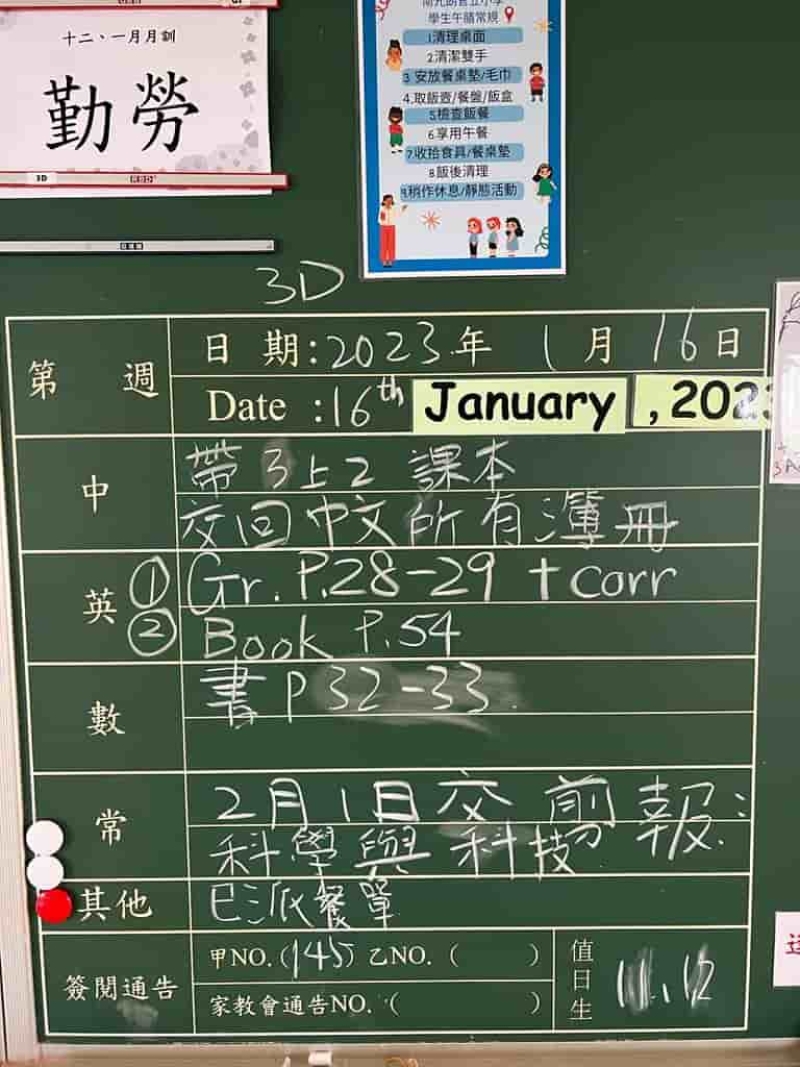 十二、一月月訓
勤勞
3D
學生午膳常規
1清理桌面
2清潔雙手
3 安放餐桌墊/毛巾
4.取飯壺/餐盤/飯盒
5檢查飯餐
6享用午餐
7收拾食具/餐桌墊
8飯後清理
9稍作休息/靜態活動
3D
第 週
日 期:2023年 1月 16日
Date :16th January , 2023
中
帶 3上2 課本
交回中文所有簿冊
英
① Gr. P.28-29 + corr
② Book P.54
數
書 P 32-33
常
2月1日交 剪報:
科學與科技
其他
已派餐單
簽閱通告
甲NO.(145) 乙NO. ( )
家教會通告NO. ( )
值日生
11、12